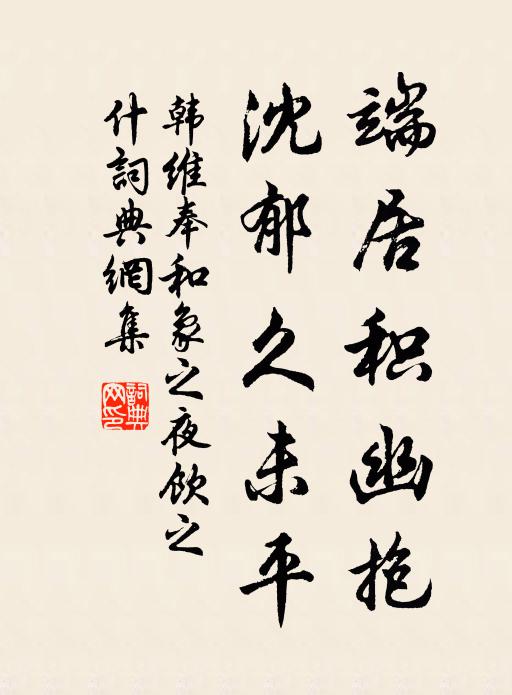 端居积幽抱
沈郁久未平
韩维奉和象之夜饮之
什詞典網集
詞典
网印